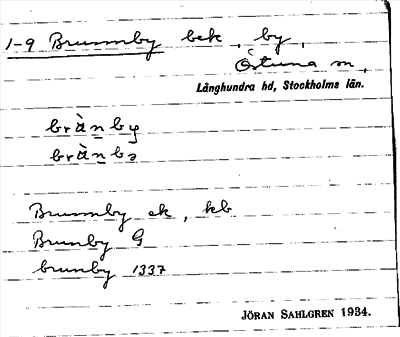 1-9 Brunnby bek, by,
Östuna sn,
Långhundra hd, Stockholms län.
brànby
brànbə
Brunnby ek, kb
Brunby G
brunby 1337
JÖRAN SAHLGREN 1934.